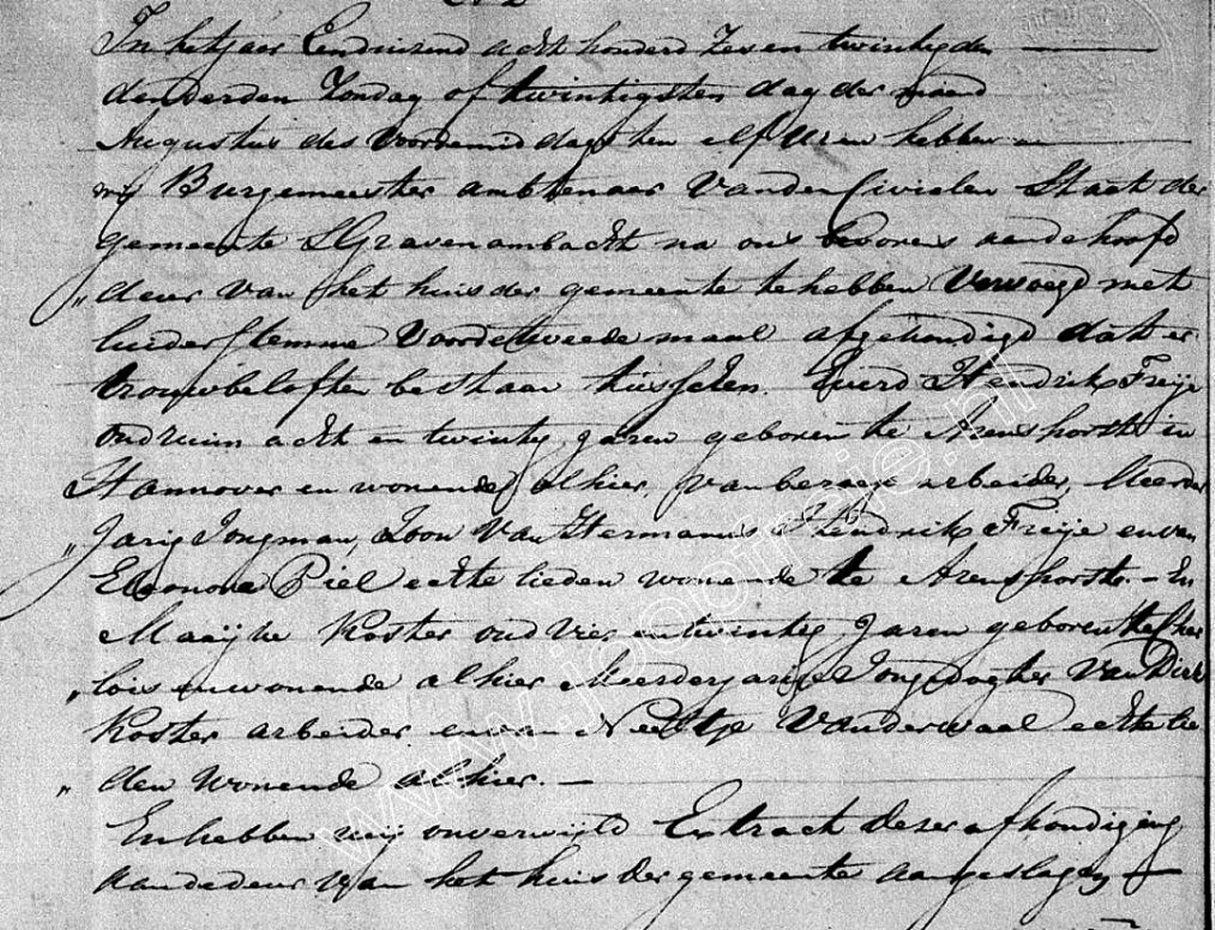 In het jaar Eenduizend acht honderd Zes en twintig den
den derden Zondag of twintigsten dag der maand
Augustus des Voordemiddags ten elf Uren hebben
wij Burgemeester ambtenaar Van den Civielen Staat der
gemeente SGravenambacht na ons bevorens aan de hoofd
„deur van het huis der gemeente te hebben Vervoegd met
luider stemme Voor de tweede maal afgekondigd dat er
trouwbeloften bestaan tusschen. Evierd Hendrik Freije
oud ruim acht en twintig Jaren geboren te Arenshorst in
Hannover en wonende alhier, van beroep arbeider, Meerder
„Jarig Jongman, Zoon Van Hermanus Hendrik Freije en van
Eleonore Piel echte lieden wonende te Arenshorst. – En
Maaijke Koster oud vier en twintig Jaren geboren te Char
„lois en wonende alhier Meerderjarige Jongedogter Van Dirk
Koster arbeider en van Neeltje Van der Waal echte lie
„den wonende alhier. –
En hebben wij onverwijld Extract dezer afkondiging
aan de deur Van het huis der gemeente aangeslagen
www.joopfreije.nl